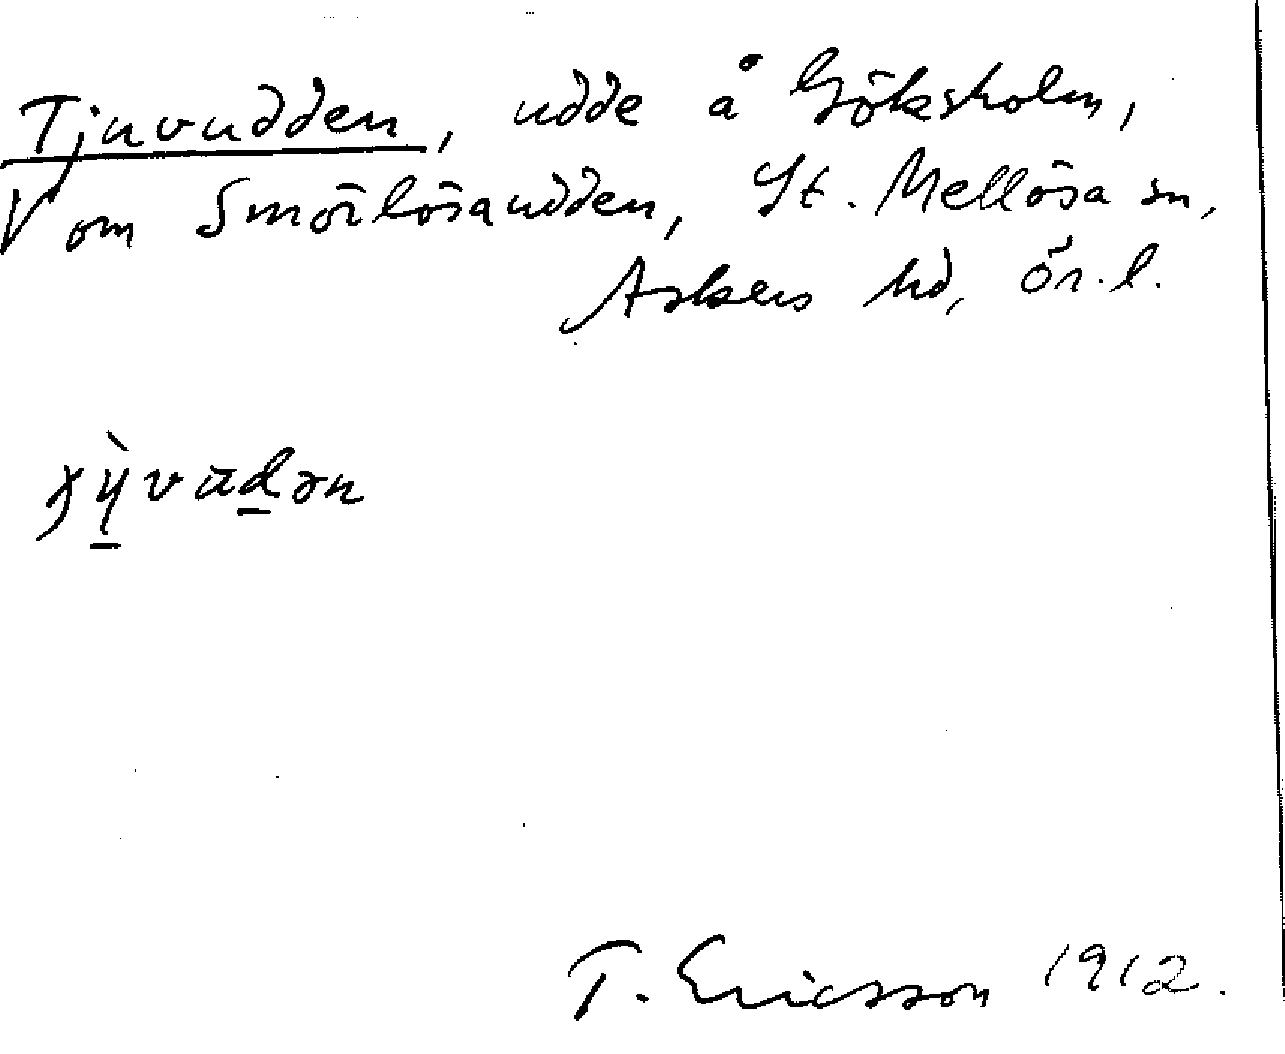 Tjuvudden, udde å Göksholm,
V om Smörlösaudden, St. Mellösa sn,
Askers hd, Ör. l.
T. Ericsson 1912.